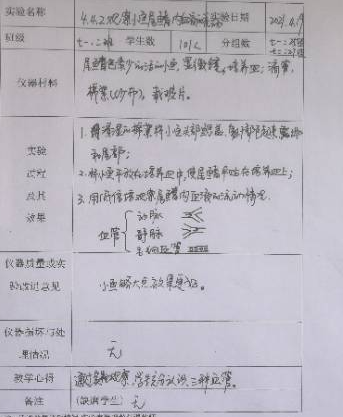 实验名称 4.4.2观察小鱼尾鳍内血液流动 实验日期 2021.4.19
班级 七一.二班 学生数 101人 分组数
仪器材料 尾鳍色素少的活的小鱼,显微镜,培养皿,滴管,
棉絮(纱布),载玻片。
实验 1.用浸湿的棉絮将小鱼头部 包裹
过程 和尾部;
及其 2.将小鱼平放在培养皿中,使尾鳍平贴在培养皿上;
效果 3.用低倍镜观察尾鳍内血液的流动情况.
血管 动脉
静脉
毛细血管
仪器质量或实
验改进意见 小鱼略大点效果更好。
仪器损坏与处
理情况 无
教学心得 通过实验观察,学生充分认识三种血管。
备注 (缺席学生) 无